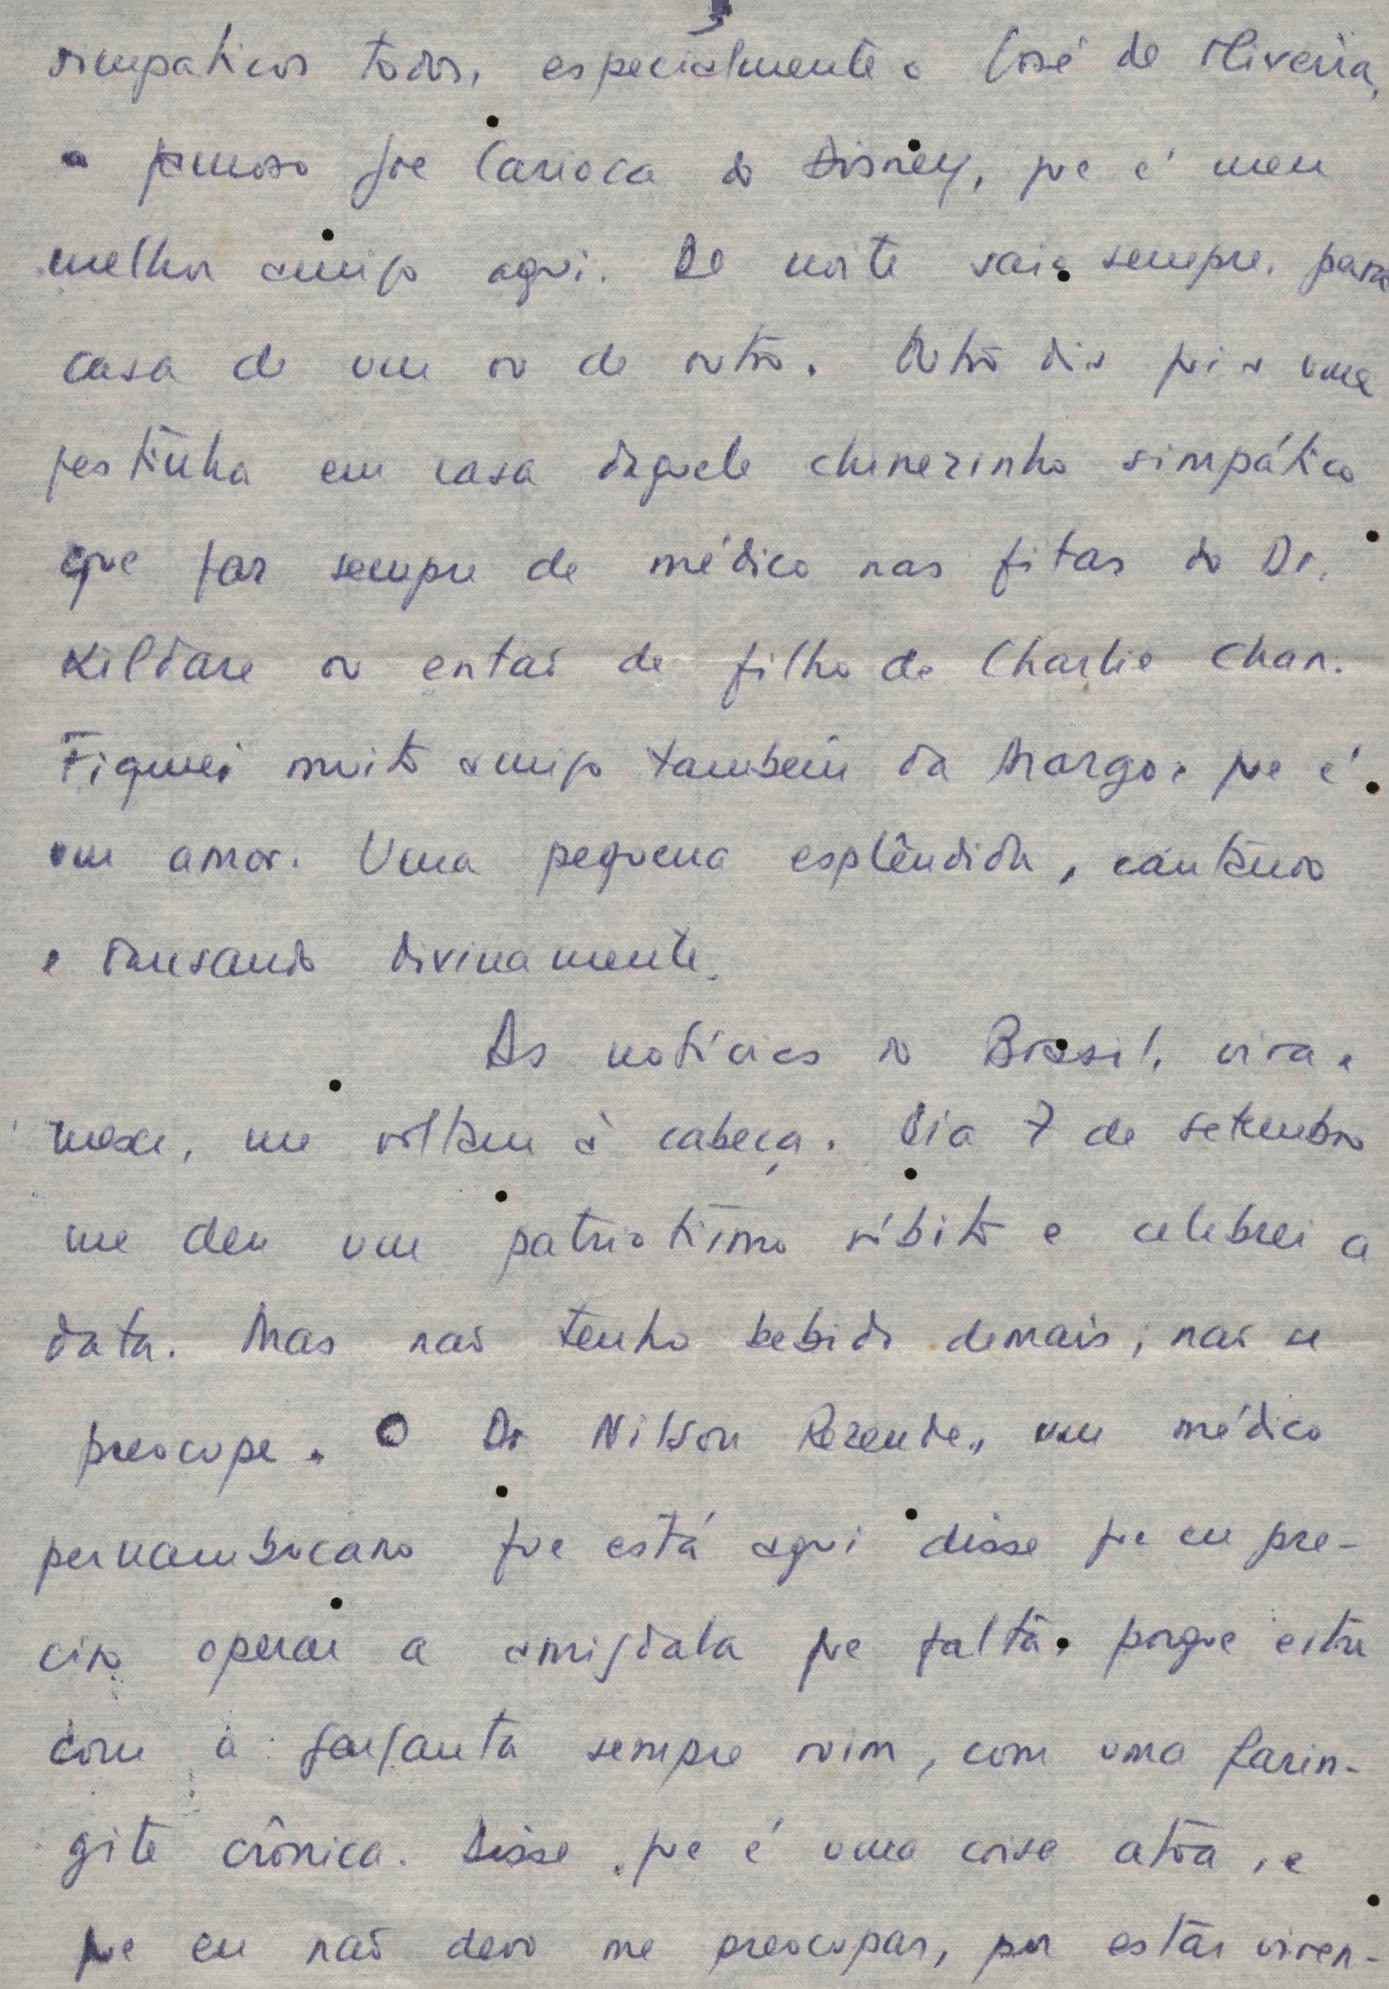 simpaticos todos, especialmente o José de Oliveira,
o famoso Joe Carioca do Disney, que é meu
melhor amigo aqui. De noite saio sempre, para
casa de um ou de outro. Outro dia fui a uma
festinha em casa daquele chinezinho simpático
que faz sempre de médico nas fitas do Dr.
Kildare ou entaõ de filho de Charlie Chan.
Fiquei muito amigo tambem da Margo, que é
um amor. Uma pequena esplêndida, cantando
e dansando divinamente.
As notícias do Brasil, vira e
mexe, me voltam à cabeça. Dia 7 de setembro
me deu um patriotismo súbito e celebrei a
data. Mas naõ tenho bebido demais, naõ se
preocupe. O Dr Nilson Rezende, um médico
pernambucano que está aqui disse que eu pre-
ciso operar a amigdala que falta, porque estou
com a garganta sempre ruim, com uma farin-
gite crônica. Disse que é uma coisa atôa, e
que eu naõ devo me preocupar, por estar viven-